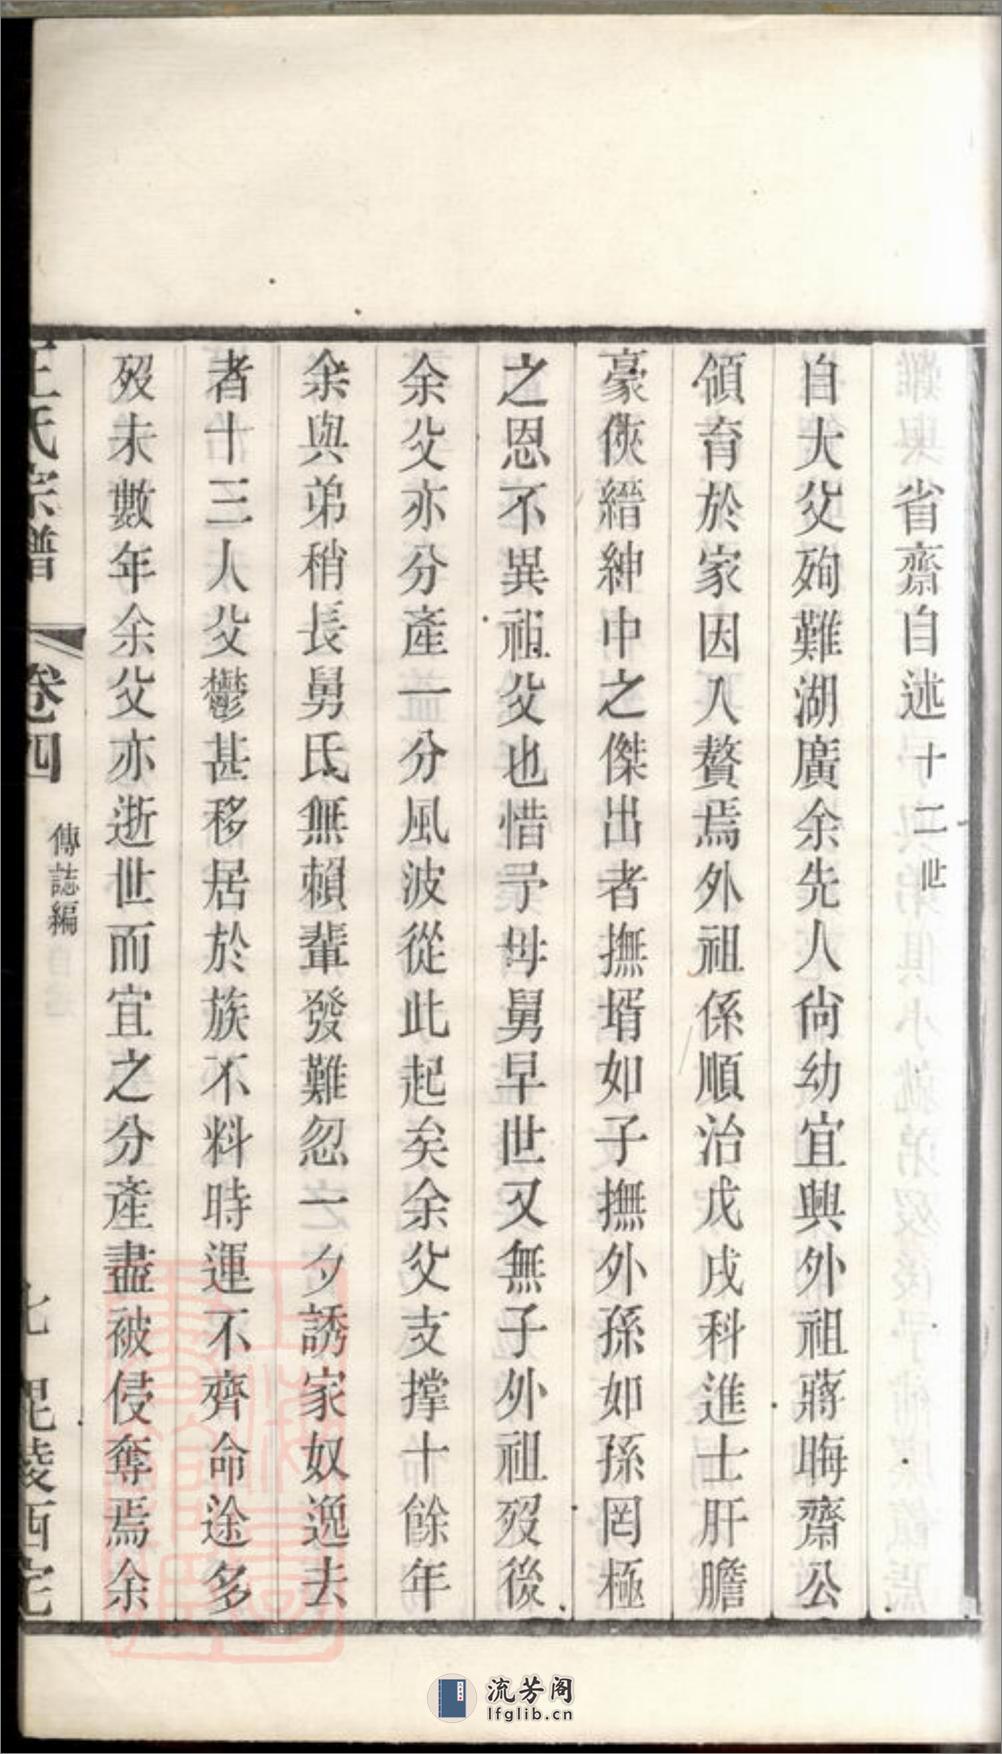 省齋自述十二世
自大父殉難湖廣余先人尙幼宜興外祖蔣晦齋公
領育於家因入贅焉外祖係順治戊戌科進士肝膽
豪俠縉紳中之傑出者撫壻如子撫外孫如孫罔極
之恩不異祖父也惜予母舅早世又無子外祖歿後
余父亦分產一分風波從此起矣余父支撐十餘年
余與弟稍長舅氏無賴輩發難忽一夕誘家奴逸去
者十三人父鬱甚移居於族不料時運不齊命途多
歿未數年余父亦逝世而宜之分產盡被侵奪焉余
王氏宗譜 卷四 傳誌編 七 毘陵西宅
流芳阁
lfglib.cn